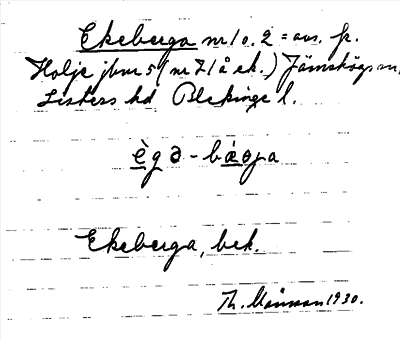 Ekeberga nr 1 o. 2 = avs. fr.
Holje jbnr 5 (nr 7 1/å ek.) Jämshögs sn,
Listers hd Blekinge l.
ègə-bæ̀ərja
Ekeberga, bek.
Th. Månsson 1930.